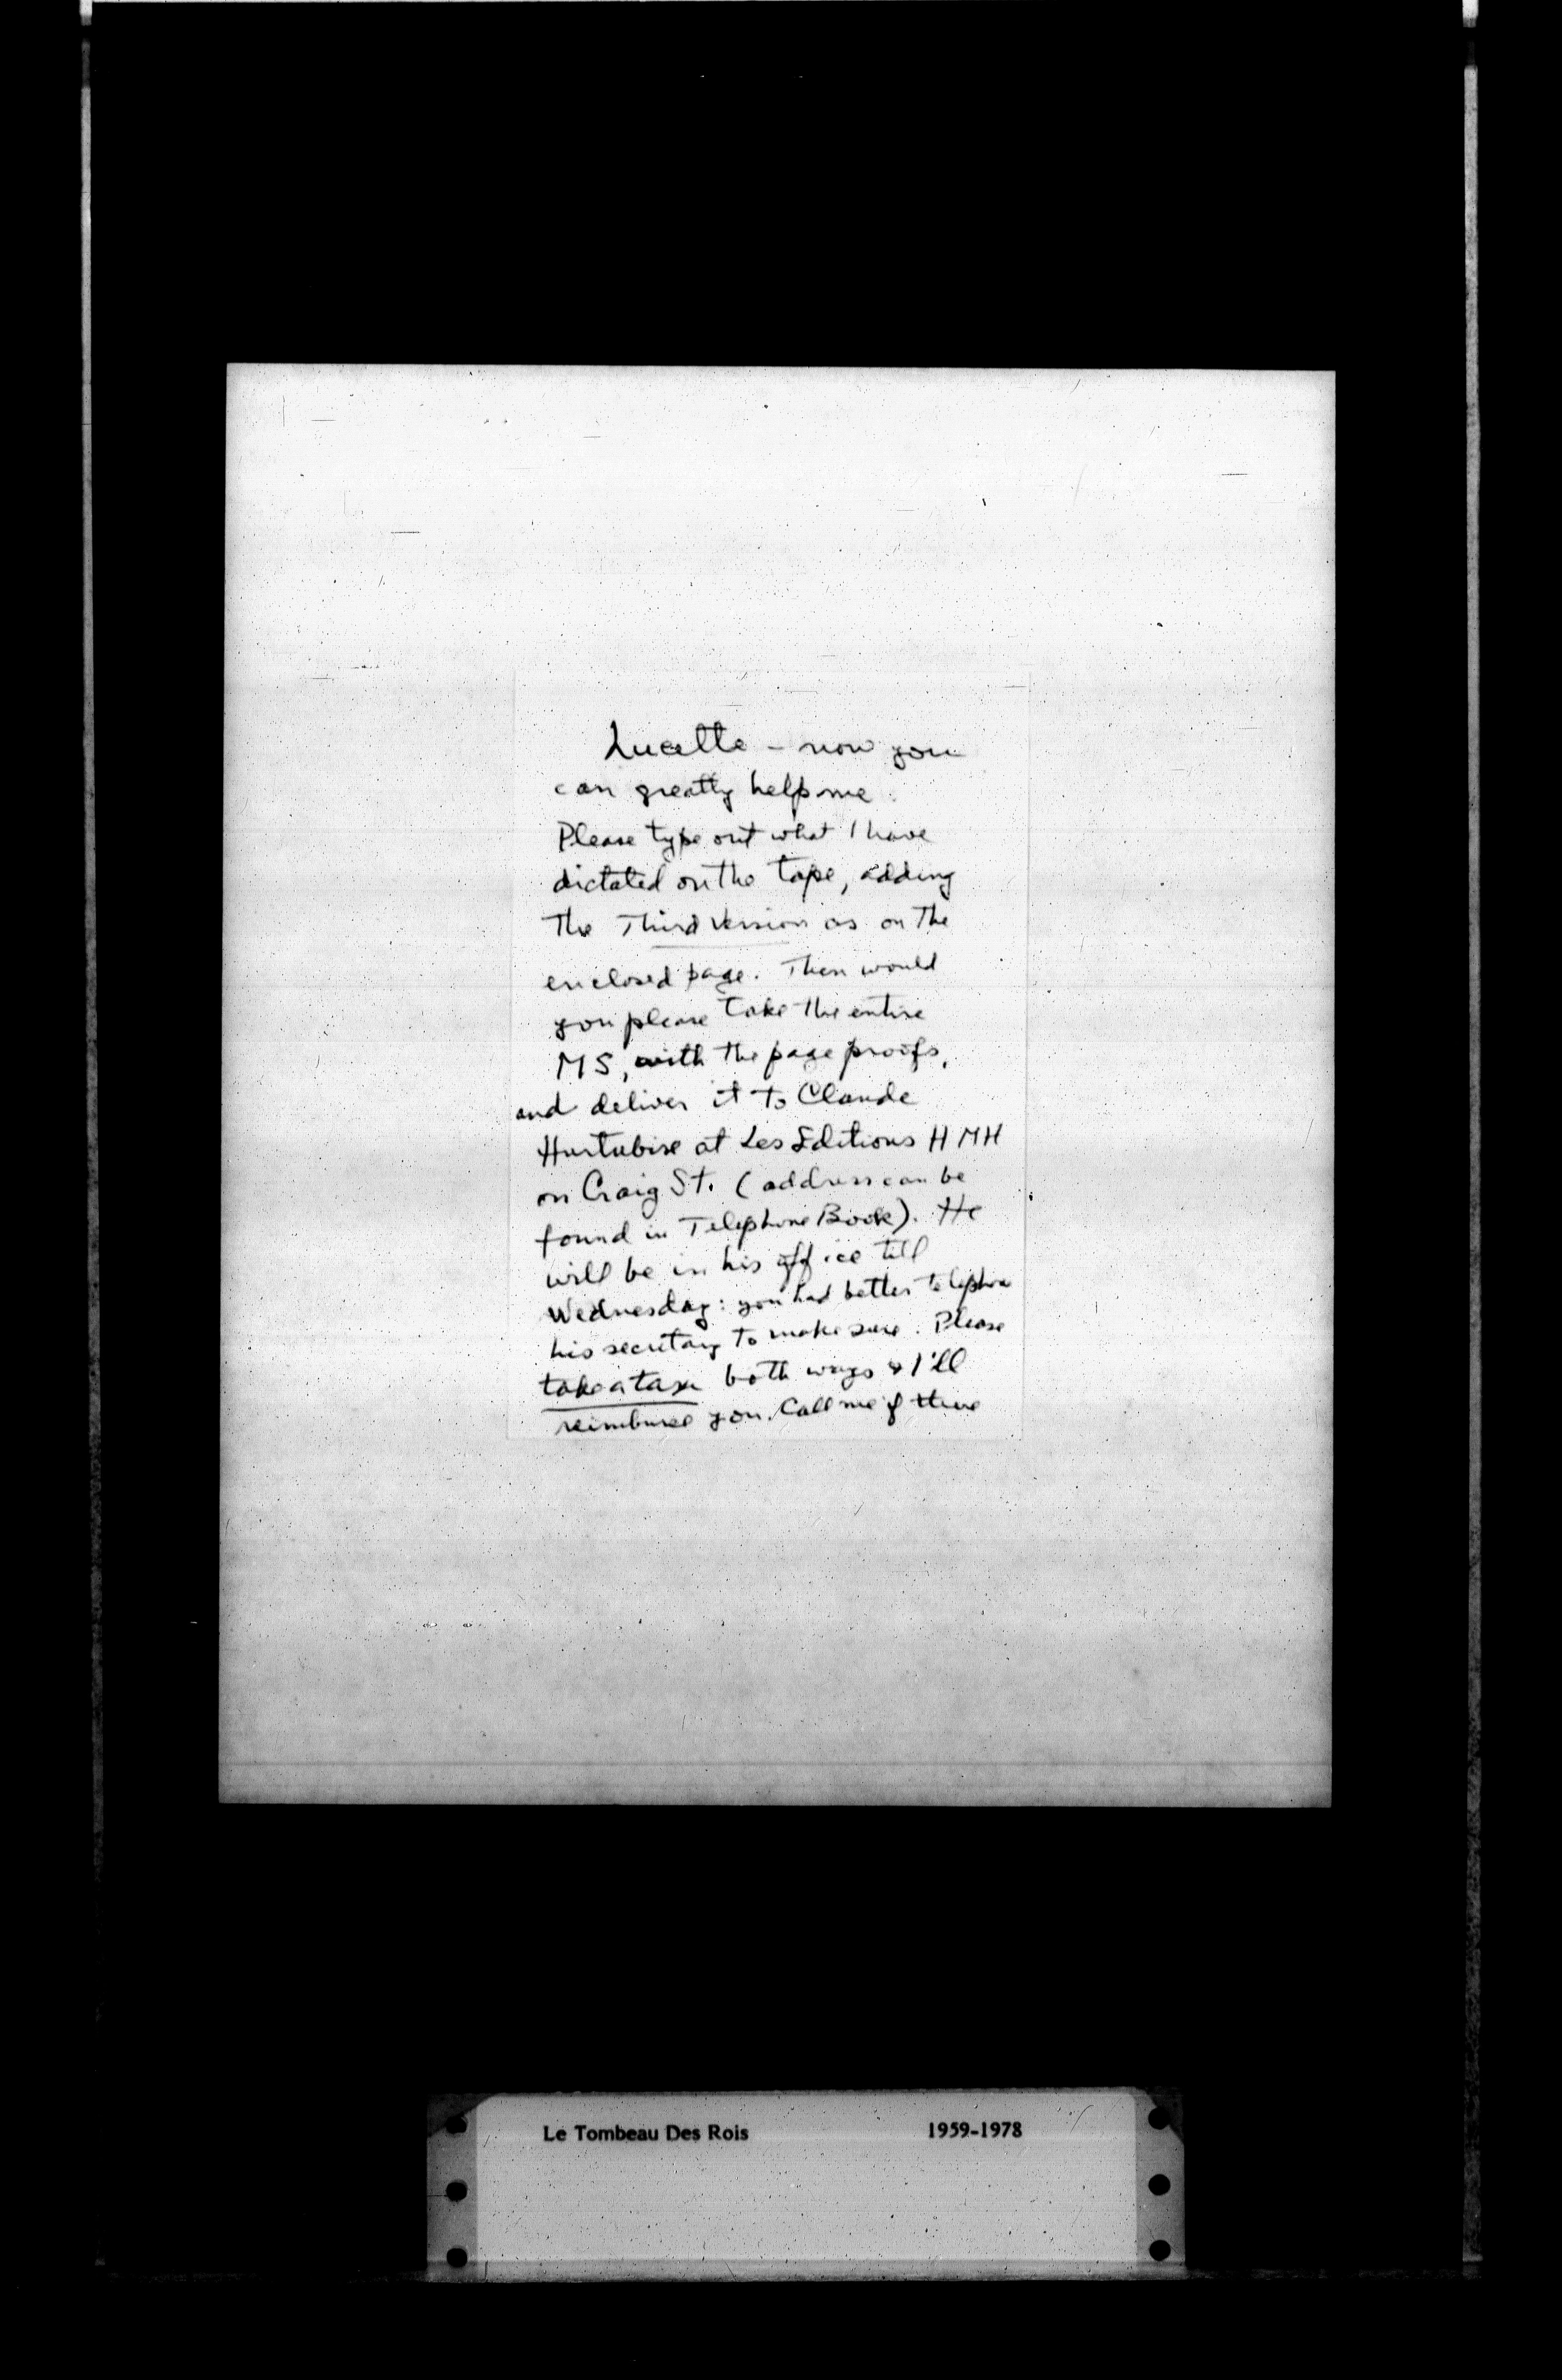 Lucette – now you
can greatly help me.
Please type out what I have
dictated on the tape, adding
the Third Version as on the
enclosed page. Then would
you please take the entire
MS, with the page proofs,
and deliver it to Claude
Hurtubise at Les Editions HMH
on Craig St. (address can be
found in Telephone Book). He
will be in his office till
Wednesday: you had better telephone
his secretary to make sure. Please
take a taxi both ways & I'll
reimburse you. Call me if there
Le Tombeau Des Rois 1959-1978